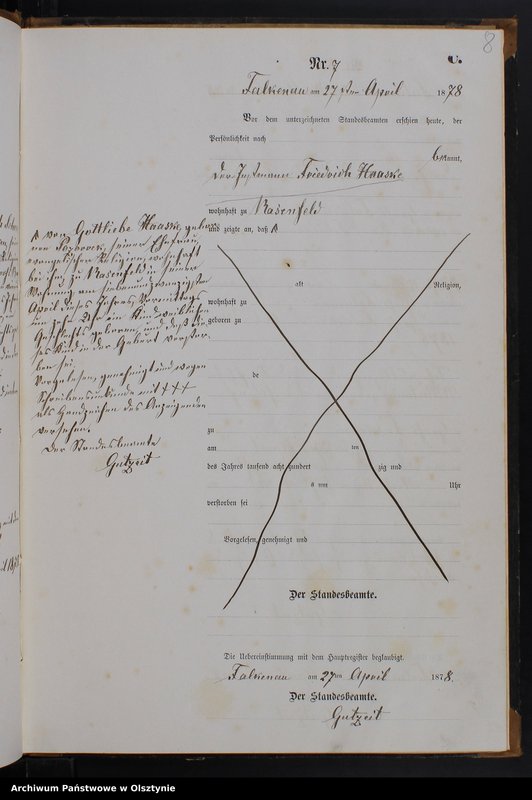 8
Nr. 7
C.
Falkenau am 27 ten April 1878
Vor dem unterzeichneten Standesbeamten erschien heute, der
Persönlichkeit nach
bekannt,
der Instmann Friedrich Haaske
wohnhaft zu Rosenfeld
und zeigte an, daß
von Gottliebe Haaske, geborenen
seiner Ehefrau
evangelischer Religion, wohnhaft
bei ihm zu Rosenfeld in seiner
Wohnung am siebenundzwanzigsten
April dieses Jahres Vormittags
um zehn Uhr ein Kind weiblichen
Geschlechts geboren, und daß die-
ses Kind in der Geburt verstor-
ben sei.
Vorgelesen, genehmigt und wegen
Schreibensunkunde mit +++
als Handzeichen des Anzeigenden
versehen.
Der Standesbeamte
Gutzeit
alt Religion,
wohnhaft zu
geboren zu
de
zu
am ten
des Jahres tausend acht hundert zig und
um Uhr
verstorben sei
Vorgelesen, genehmigt und
Der Standesbeamte.
Die Uebereinstimmung mit dem Hauptregister beglaubigt.
Falkenau am 27ten April 1878.
Der Standesbeamte.
Gutzeit
Archiwum Państwowe w Olsztynie